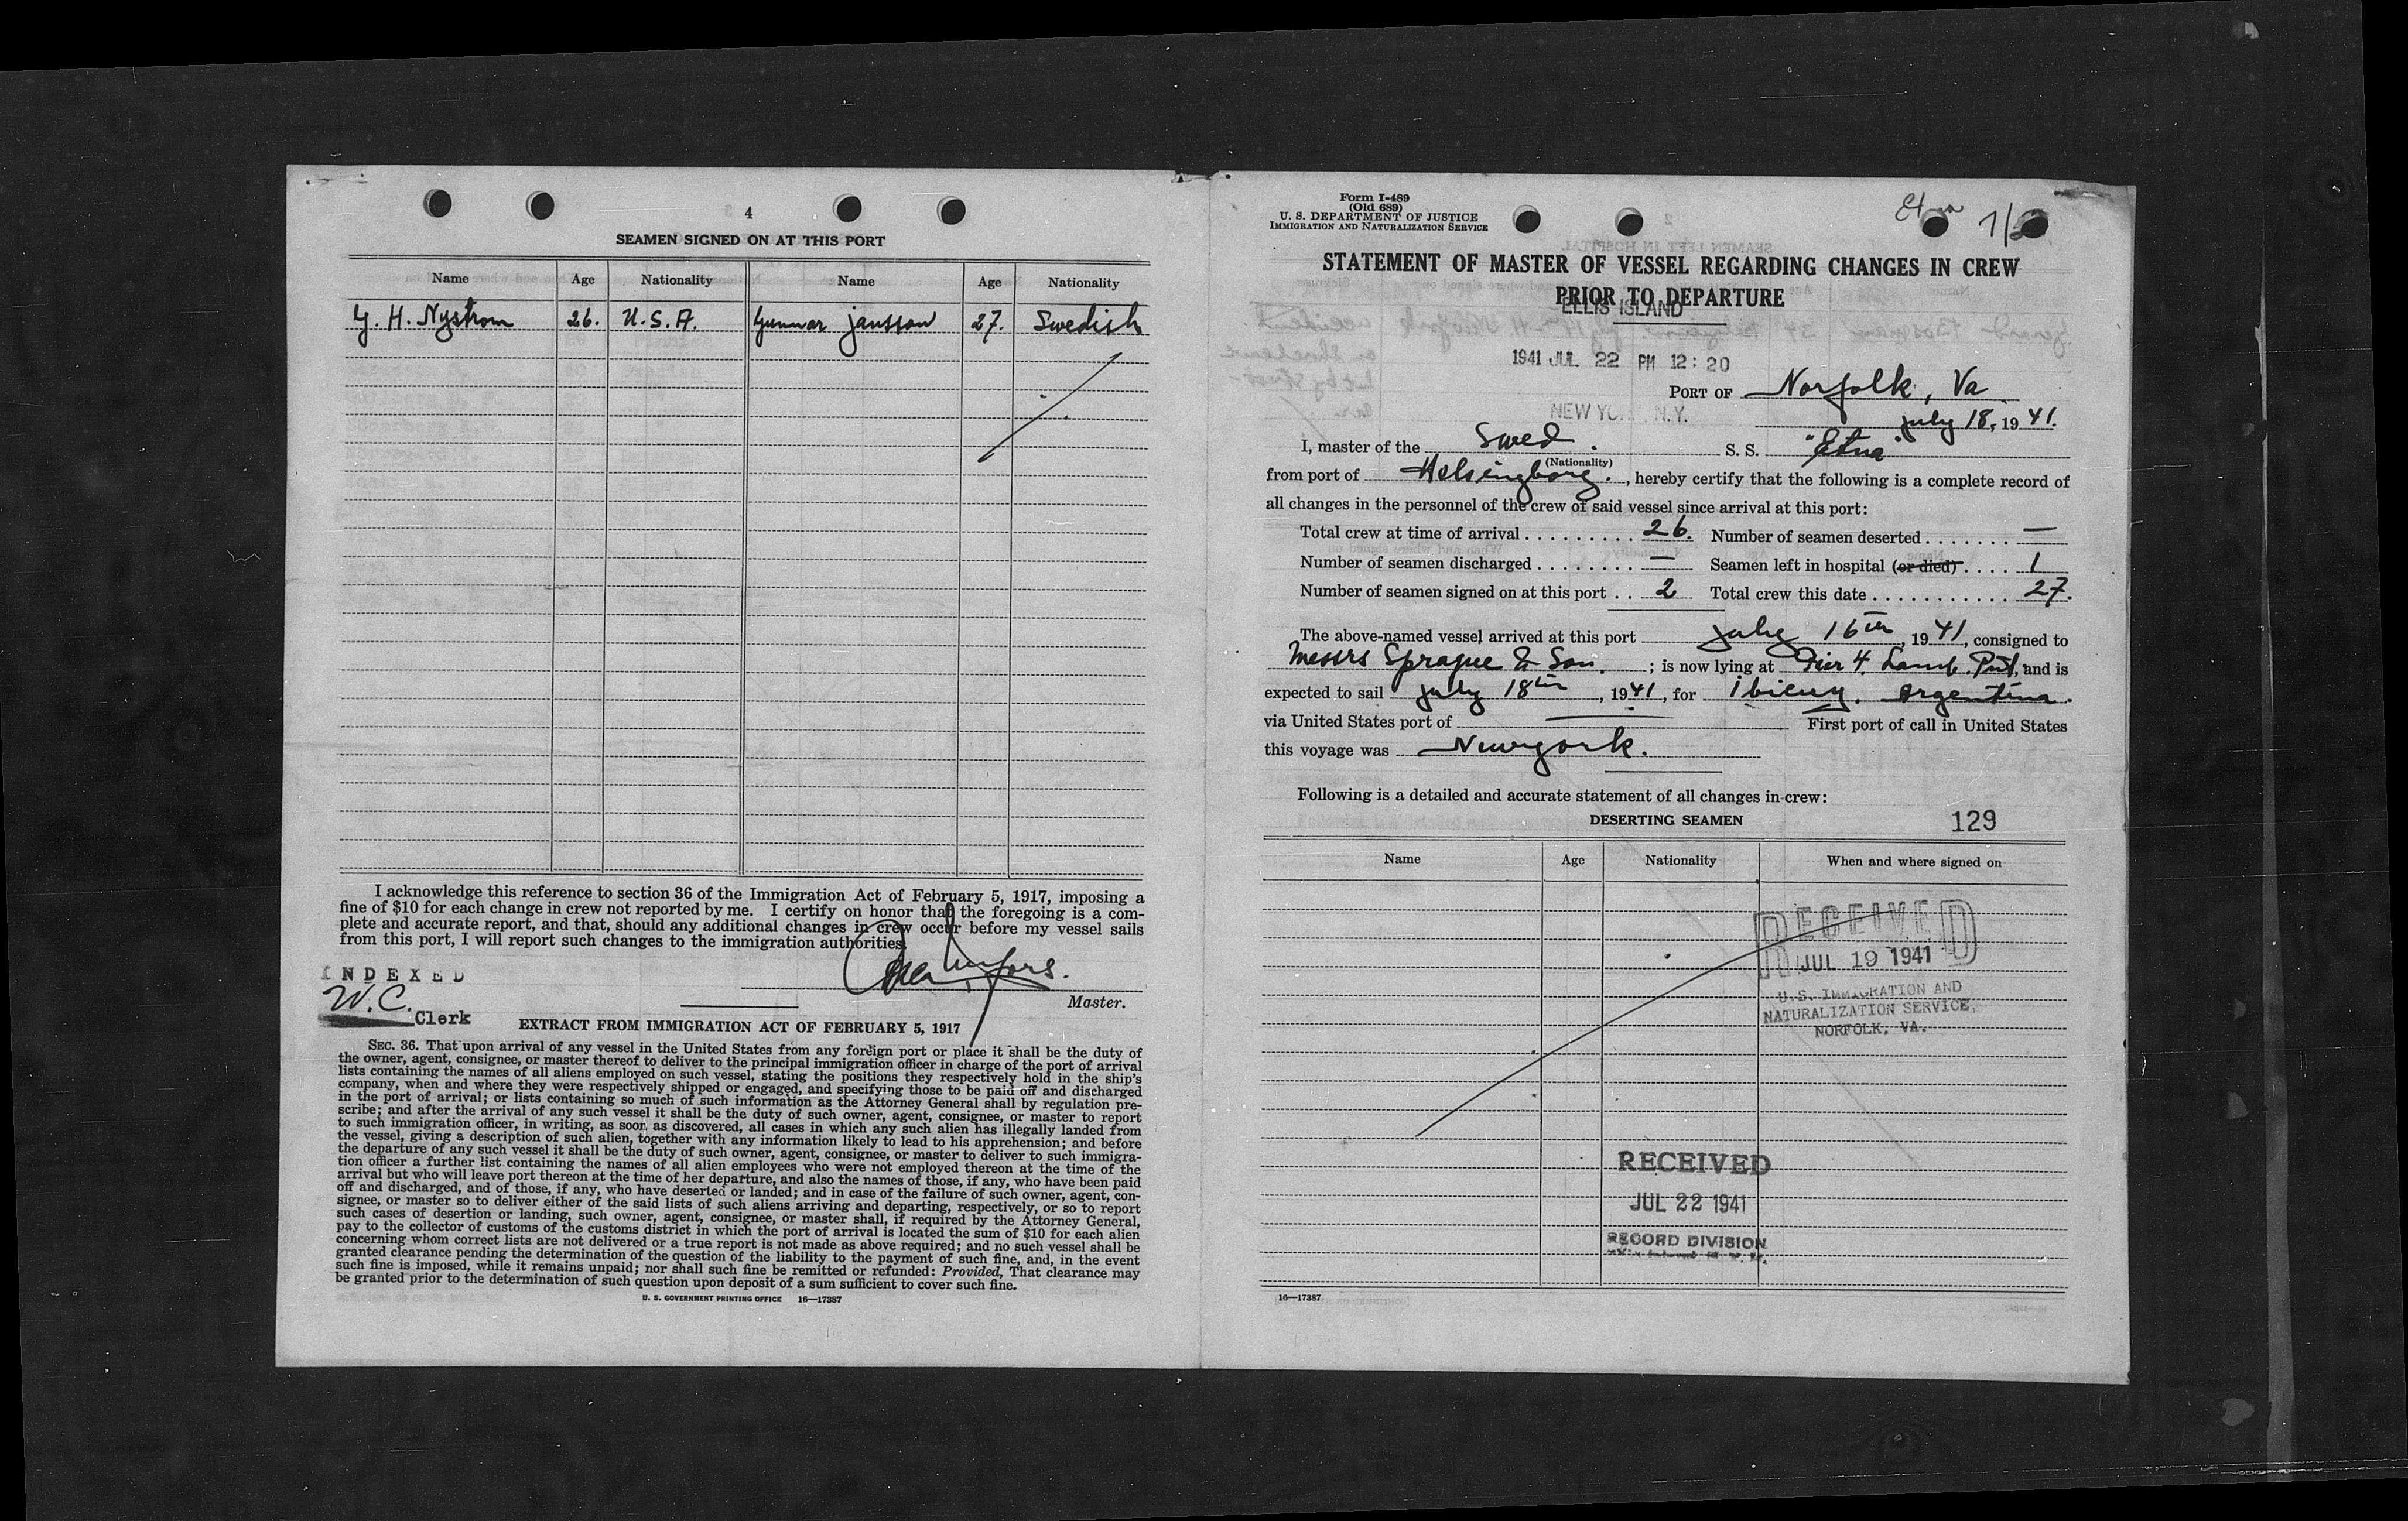 4
SEAMEN SIGNED ON AT THIS PORT
Name Age Nationality Name Age Nationality
G. H. Nyström 26. U.S.A. Gunnar Jansson 27. Swedish
I acknowledge this reference to section 36 of the Immigration Act of February 5, 1917, imposing a
fine of $10 for each change in crew not reported by me. I certify on honor that the foregoing is a com-
plete and accurate report, and that, should any additional changes in crew occur before my vessel sails
from this port, I will report such changes to the immigration authorities.
INDEXED
W.C.
Clerk
Master.
EXTRACT FROM IMMIGRATION ACT OF FEBRUARY 5, 1917
SEC. 36. That upon arrival of any vessel in the United States from any foreign port or place it shall be the duty of
the owner, agent, consignee, or master thereof to deliver to the principal immigration officer in charge of the port of arrival
lists containing the names of all aliens employed on such vessel, stating the positions they respectively hold in the ship's
company, when and where they were respectively shipped or engaged, and specifying those to be paid off and discharged
in the port of arrival; or lists containing so much of such information as the Attorney General shall by regulation pre-
scribe; and after the arrival of any such vessel it shall be the duty of such owner, agent, consignee, or master to report
to such immigration officer, in writing, as soon as discovered, all cases in which any such alien has illegally landed from
the vessel, giving a description of such alien, together with any information likely to lead to his apprehension; and before
the departure of any such vessel it shall be the duty of such owner, agent, consignee, or master to deliver to such immigra-
tion officer a further list containing the names of all alien employees who were not employed thereon at the time of the
arrival but who will leave port thereon at the time of her departure, and also the names of those, if any, who have been paid
off and discharged, and of those, if any, who have deserted or landed; and in case of the failure of such owner, agent, con-
signee, or master so to deliver either of the said lists of such aliens arriving and departing, respectively, or so to report
such cases of desertion or landing, such owner, agent, consignee, or master shall, if required by the Attorney General,
pay to the collector of customs of the customs district in which the port of arrival is located the sum of $10 for each alien
concerning whom correct lists are not delivered or a true report is not made as above required; and no such vessel shall be
granted clearance pending the determination of the question of the liability to the payment of such fine, and, in the event
such fine is imposed, while it remains unpaid; nor shall such fine be remitted or refunded: Provided, That clearance may
be granted prior to the determination of such question upon deposit of a sum sufficient to cover such fine.
U. S. GOVERNMENT PRINTING OFFICE 16—17387
Form I-489
(Old 689)
U. S. DEPARTMENT OF JUSTICE
IMMIGRATION AND NATURALIZATION SERVICE
Etna
STATEMENT OF MASTER OF VESSEL REGARDING CHANGES IN CREW
PRIOR TO DEPARTURE
ELLIS ISLAND
1941 JUL 22 PM 12:20
PORT OF Norfolk, Va
NEW YO.. N.Y.
July 18, 1941.
I, master of the Swed. S. S. "Etna"
(Nationality)
from port of Helsingborg., hereby certify that the following is a complete record of
all changes in the personnel of the crew of said vessel since arrival at this port:
Total crew at time of arrival ......... 26. Number of seamen deserted ....... —
Number of seamen discharged ........ — Seamen left in hospital (or died) .... 1
Number of seamen signed on at this port .. 2 Total crew this date ........... 27.
The above-named vessel arrived at this port July 16th, 1941, consigned to
Messrs Sprague & Son. ; is now lying at Pier 4, Lamb. Pnt, and is
expected to sail July 18th, 1941, for Ibicuy. Argentina.
via United States port of — First port of call in United States
this voyage was Newyork.
Following is a detailed and accurate statement of all changes in crew:
DESERTING SEAMEN 129
Name Age Nationality When and where signed on
RECEIVED
JUL 19 1941
U.S. IMMIGRATION AND
NATURALIZATION SERVICE,
NORFOLK, VA.
RECEIVED
JUL 22 1941
RECORD DIVISION
16—17387